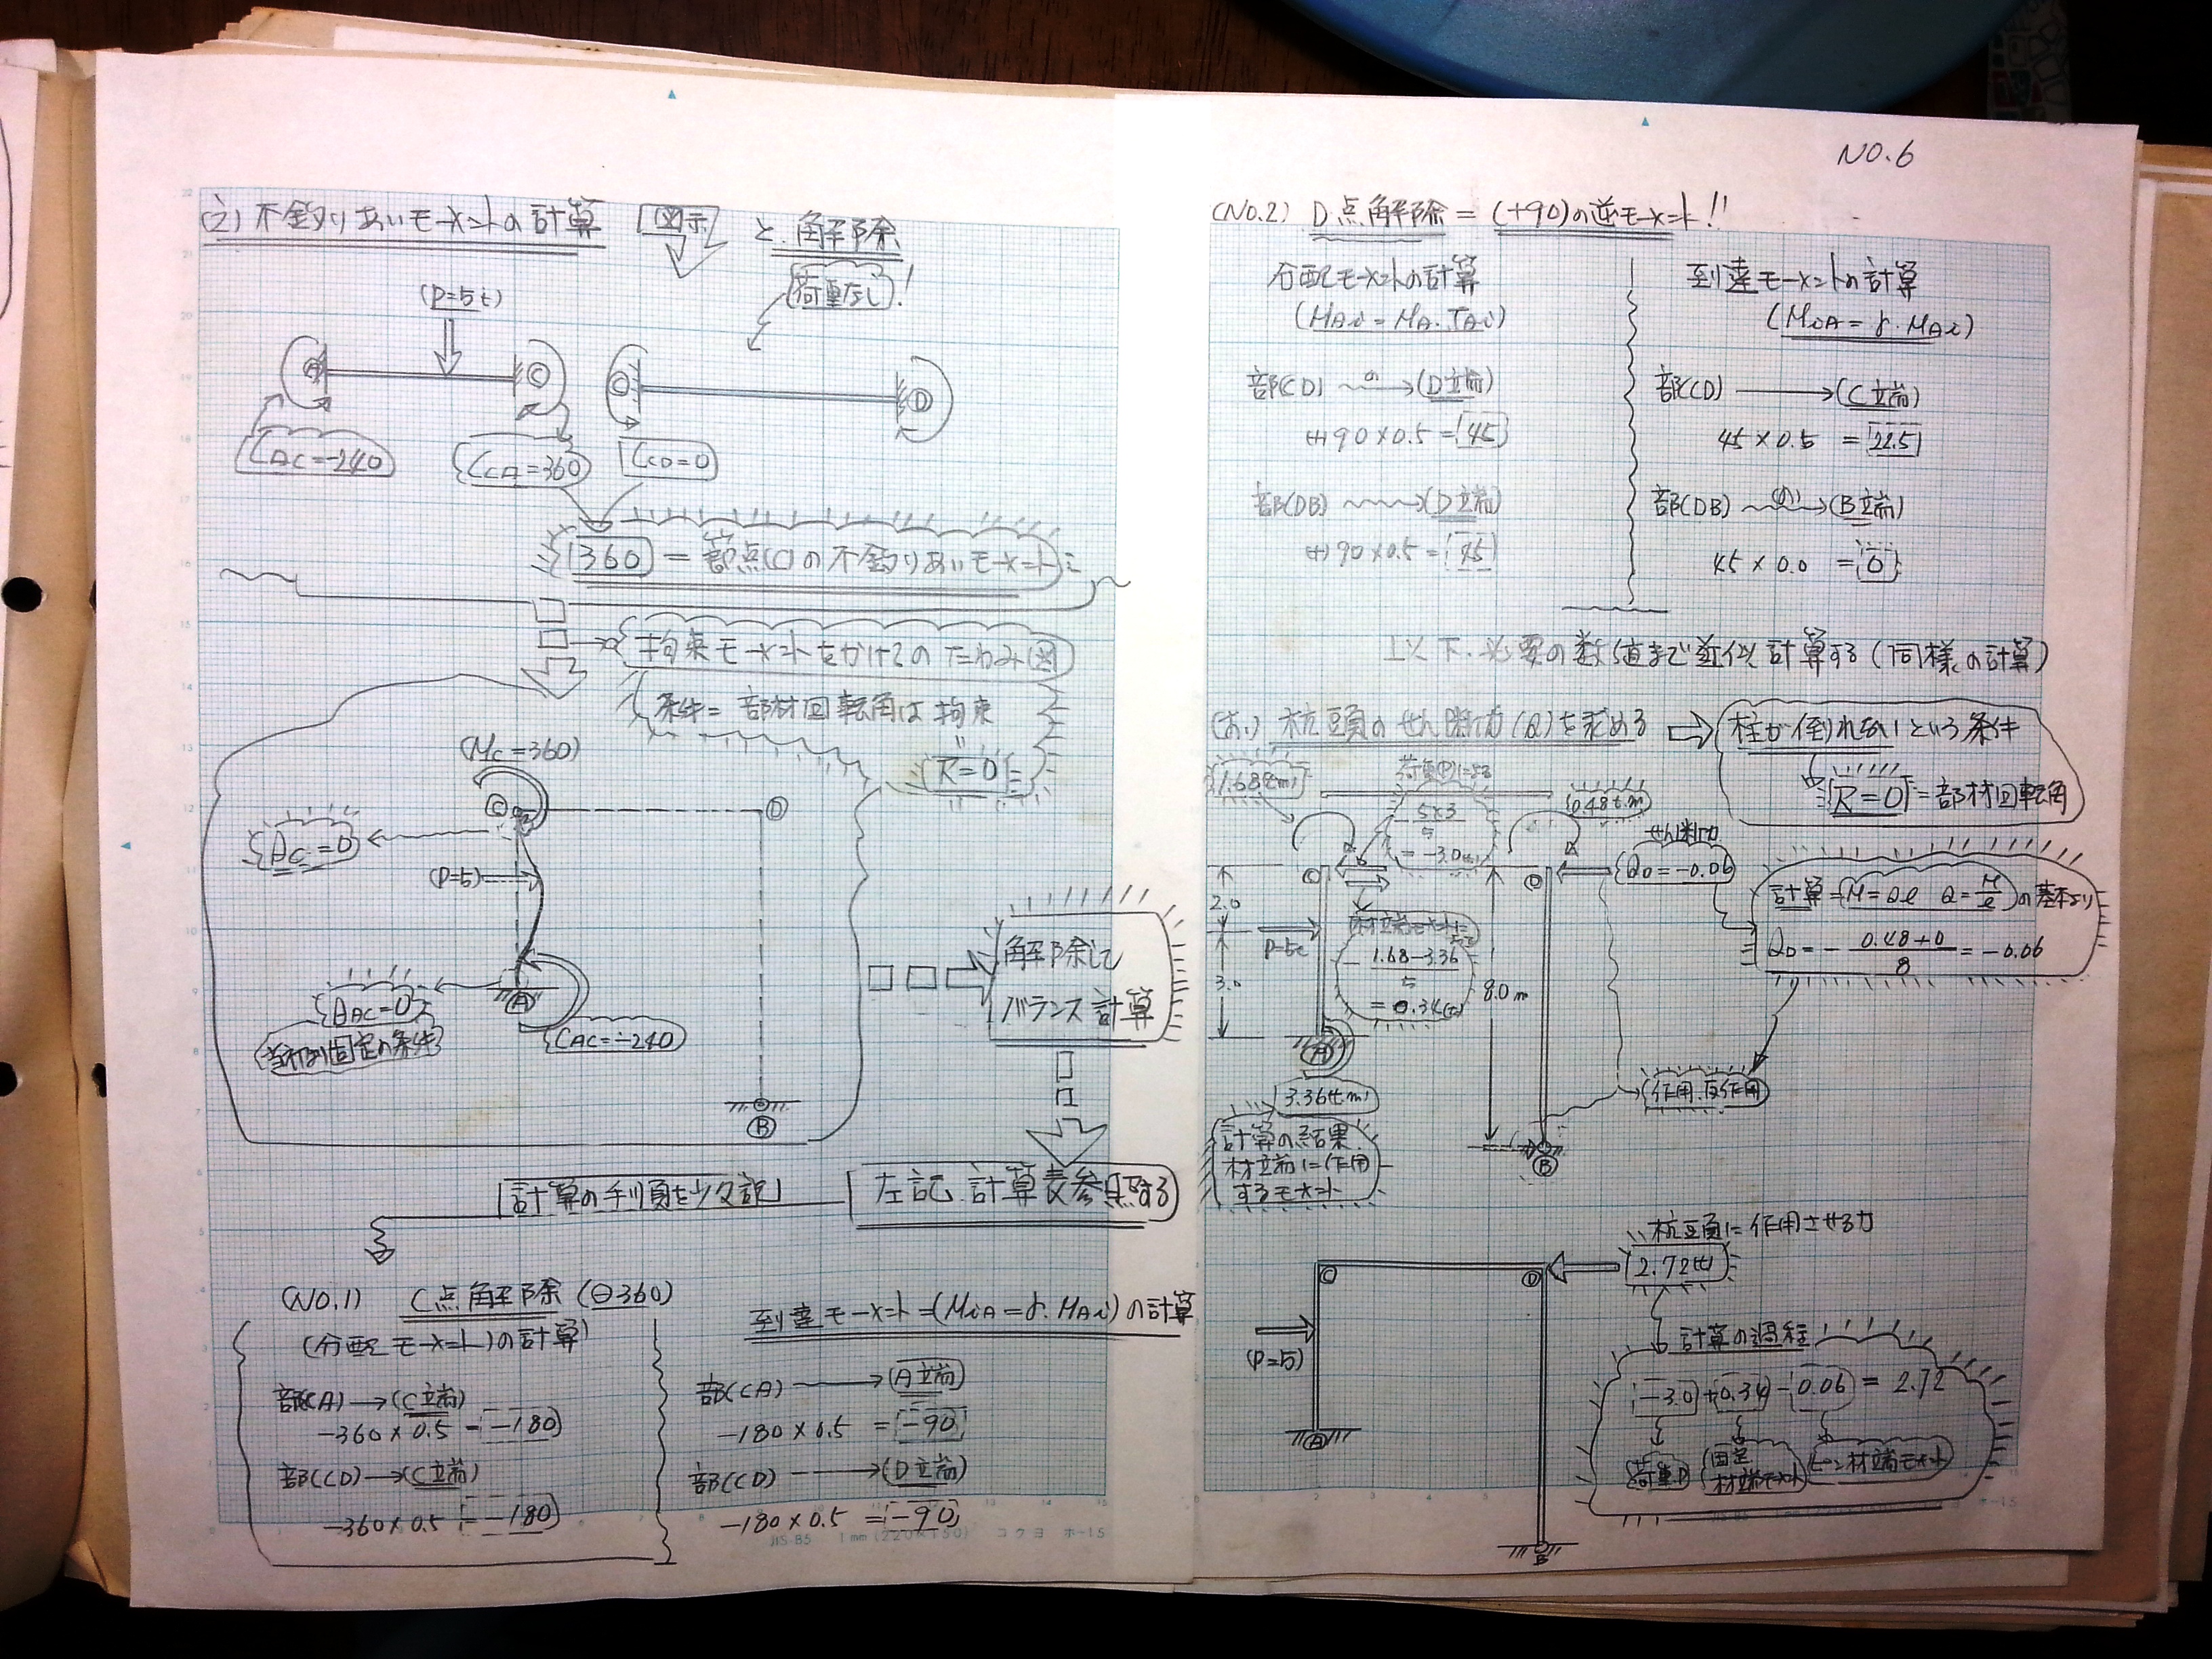 (注) 不釣りあいモーメントの計算 図示 と 解除
荷重なし!
(P=5t)
A C C D
CAC=-240
CCA=360
CCD=0
360 = 節点(C)の不釣りあいモーメント
拘束モーメントをかけてのたわみ図
条件= 部材回転角は拘束
R=0
(MC=360)
C D
θC=0
(P=5)
A
θAC=0
CAC=-240
B
解除して
バランス計算
計算の手順を少々説
左記 計算表参照する
(NO.1) C点解除 (⊖360)
(分配モーメント)の計算
部(CA)→(C端)
-360×0.5=-180
部(CD)→(C端)
-360×0.5=-180
到達モーメント=(MiA=γ.MAi)の計算
部(CA)→(A端)
-180×0.5 =-90
部(CD)→(D端)
-180×0.5 =-90
JIS-B5 1mm(220×150) コクヨ ホ-15
NO.6
(NO.2) D点解除 = (+90)の逆モーメント!!
分配モーメントの計算
(MAi=MA.TAi)
部(CD) の→(D端)
(+)90×0.5=45
部(DB)→(D端)
(+)90×0.5=45
到達モーメントの計算
(MiA=γ.MAi)
部(CD)→(C端)
45×0.5 =22.5
部(DB) の→(B端)
45×0.0 =0
以下.必要の数値まで近似計算する(同様の計算)
(あ) 杭頭のせん断力(Q)を求める ⇒ 柱が倒れないという条件
R=0=部材回転角
1.68t.m
5×3
5
=-3.0(t)
0.48t.m
せん断力
QD=-0.06
C D
2.0
3.0
P=5t
1.68-3.36
5
=0.34(t)
8.0m
計算=M=Qℓ Q=M/ℓ の基本より
QD=-0.48+0/8=-0.06
A
3.36t.m
計算の結果
材端に作用
するモーメント
作用.反作用
B
杭頭に作用させる力
2.72(t)
C D
(P=5)
A
B
計算の過程
-3.0+0.34-0.06 = 2.72
荷重P
固定
材端モーメント
ピン材端モーメント